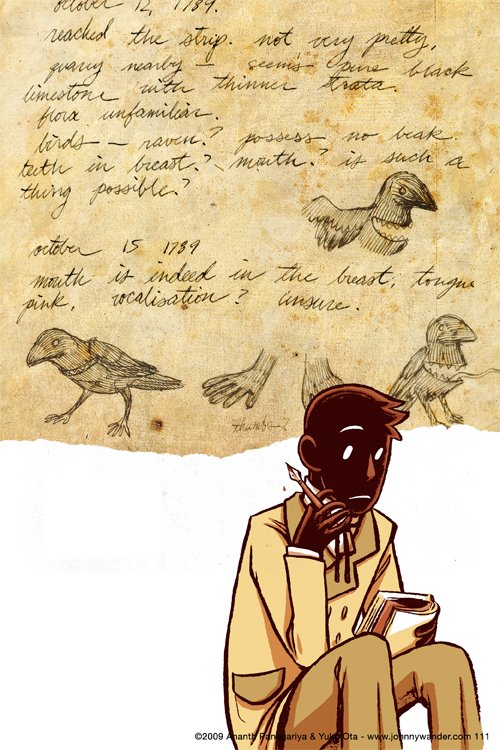 october 12, 1739.
reached the strip. not very pretty,
quarry nearby — seems pure black
limestone with thinner strata.
flora unfamiliar.
birds — raven? possess no beak.
teeth in breast? mouth? is such a
thing possible?
october 15 1739
mouth is indeed in the breast, tongue
pink, vocalisation? unsure.
thumbs?
©2009 Ananth Panagariya & Yuko Ota - www.johnnywander.com 111